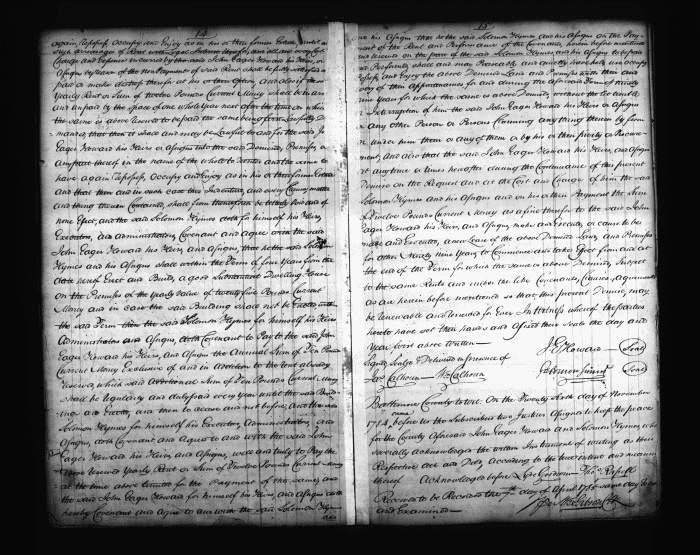 14
again Repossess Occupy and Enjoy as in his or their former Estate until
such arrearages of Rent with Legal Interest thereof and all and every Cost
Charge and Expence incurred by the said John Eager Howard his Heirs, or
Assigns by reason of the Non Payment of said Rent shall be fully satisfied
paid or make distress therefor at his or their option, And also if
Yearly Rent or Sum of twelve Pounds Current Money shall be in arrear
and unpaid by the space of one whole Year next after the time on which
the same is above Reserved to be paid the same being first Lawfully De-
manded that then it shall and may be Lawful to and for the said John
Eager Howard his Heirs or Assigns into the said Demised Premises, or
any Part thereof in the name of the whole to Reenter and the same to
have again Repossess, Occupy and Enjoy as in his or their former Estate
and that then and in such case this Indenture, and every Clause, matter
and thing therein Contained, shall from thenceforth be utterly Void and of
none Effect, and the said Solomon Hymes doth for himself his Heirs,
Executors, and Administrators, Covenant and Agree with the said
John Eager Howard his Heirs, and Assigns, that he the said Solomon
Hymes and his Assigns shall within the Term of four Years from the
date hereof Erect and Build, a good Substantial Dwelling House
on the Premises of the Yearly Value of twenty five Pounds Current
Money and in case the said Building shall not be Erected within
the said Term then the said Solomon Hymes for himself his Heirs
Administrators and Assigns, doth Covenant to Pay to the said John
Eager Howard his Heirs, and Assigns the Annual Sum of Ten Pounds
Current Money Exclusive of and in addition to the Rent already
Reserved, which said Additional Sum of Ten Pounds Current Money
shall be regularly and duly paid every Year until the said Build-
ing are Erected, and then to Cease and not before, and the said
Solomon Hymes for himself his Executors, Administrators, and
Assigns, doth Covenant and Agree to and with the said John
Eager Howard his Heirs, and Assigns, well and truly to Pay the
above Reserved Yearly Rent or Sum of Twelve Pounds Current Money
at the time above limited for the Payment of the same, and
the said John Eager Howard for himself his Heirs, and Assigns doth
hereby Covenant and Agree to and with the said Solomon Hymes
and
15
his Assigns that he the said Solomon Hymes and his Assigns on the Pay-
ment of the Rent and Performance of the Covenants, herein before mentioned
and Reserved on the part of the said Solomon Hymes and his Assigns to be paid
and Performed, shall and may Peaceably and quietly have hold use occupy
Possess and Enjoy the above Demised Land and Premises with them and
every of their appurtenances for and during the aforesaid Term of Ninety
nine Years for which the same is above Demised, without the let trouble
or Interruption of him the said John Eager Howard his Heirs or Assigns
or any other Person or Persons Claiming any thing therein by from
or under him them or any of them or by his or their privity or Procure-
ment, And also that the said John Eager Howard his Heirs, and Assigns
at any time or times hereafter during the Continuance of this present
Demise on the Request and at the Cost and Charge of him the said
Solomon Hymes and his Assigns and on his or their Payment the Sum
of Twelve Pounds Current Money as a fine therefor to the said John
Eager Howard his Heirs, and Assigns, make and Execute, or cause to be
made and Executed, a new Lease of the above Demised Land and Premises
for other Ninety nine Years, to Commence and take Effect from and at
the end of the Term for which the same is above Demised, Subject
to the same Rents and under the like Covenants, Clauses, Agreements
as are herein before mentioned so that this present Demise, may
be Renewable and Renewed for Ever. In Witness whereof the parties
hereto have set their hands and affixed their Seals the day and
Year first above written
Signed Sealed & Delivered in presence of
J E Howard (Seal)
Jas Calhoun Wm Calhoun
(Seal)
Baltimore County to wit: On the Twenty sixth day of November
1784, before Us the Subscribers two Justices Assigned to keep the peace
for the County aforesaid John Eager Howard and Solomon Hymes, who
severally acknowledge the within Instrument of writing as their
Respective Act and Deed, According to the true intent and meaning
thereof Acknowledged before Lyde Goodwin Thos Russell
Received to be Recorded the 7th day of April 1785 same day Recorded
and Examined